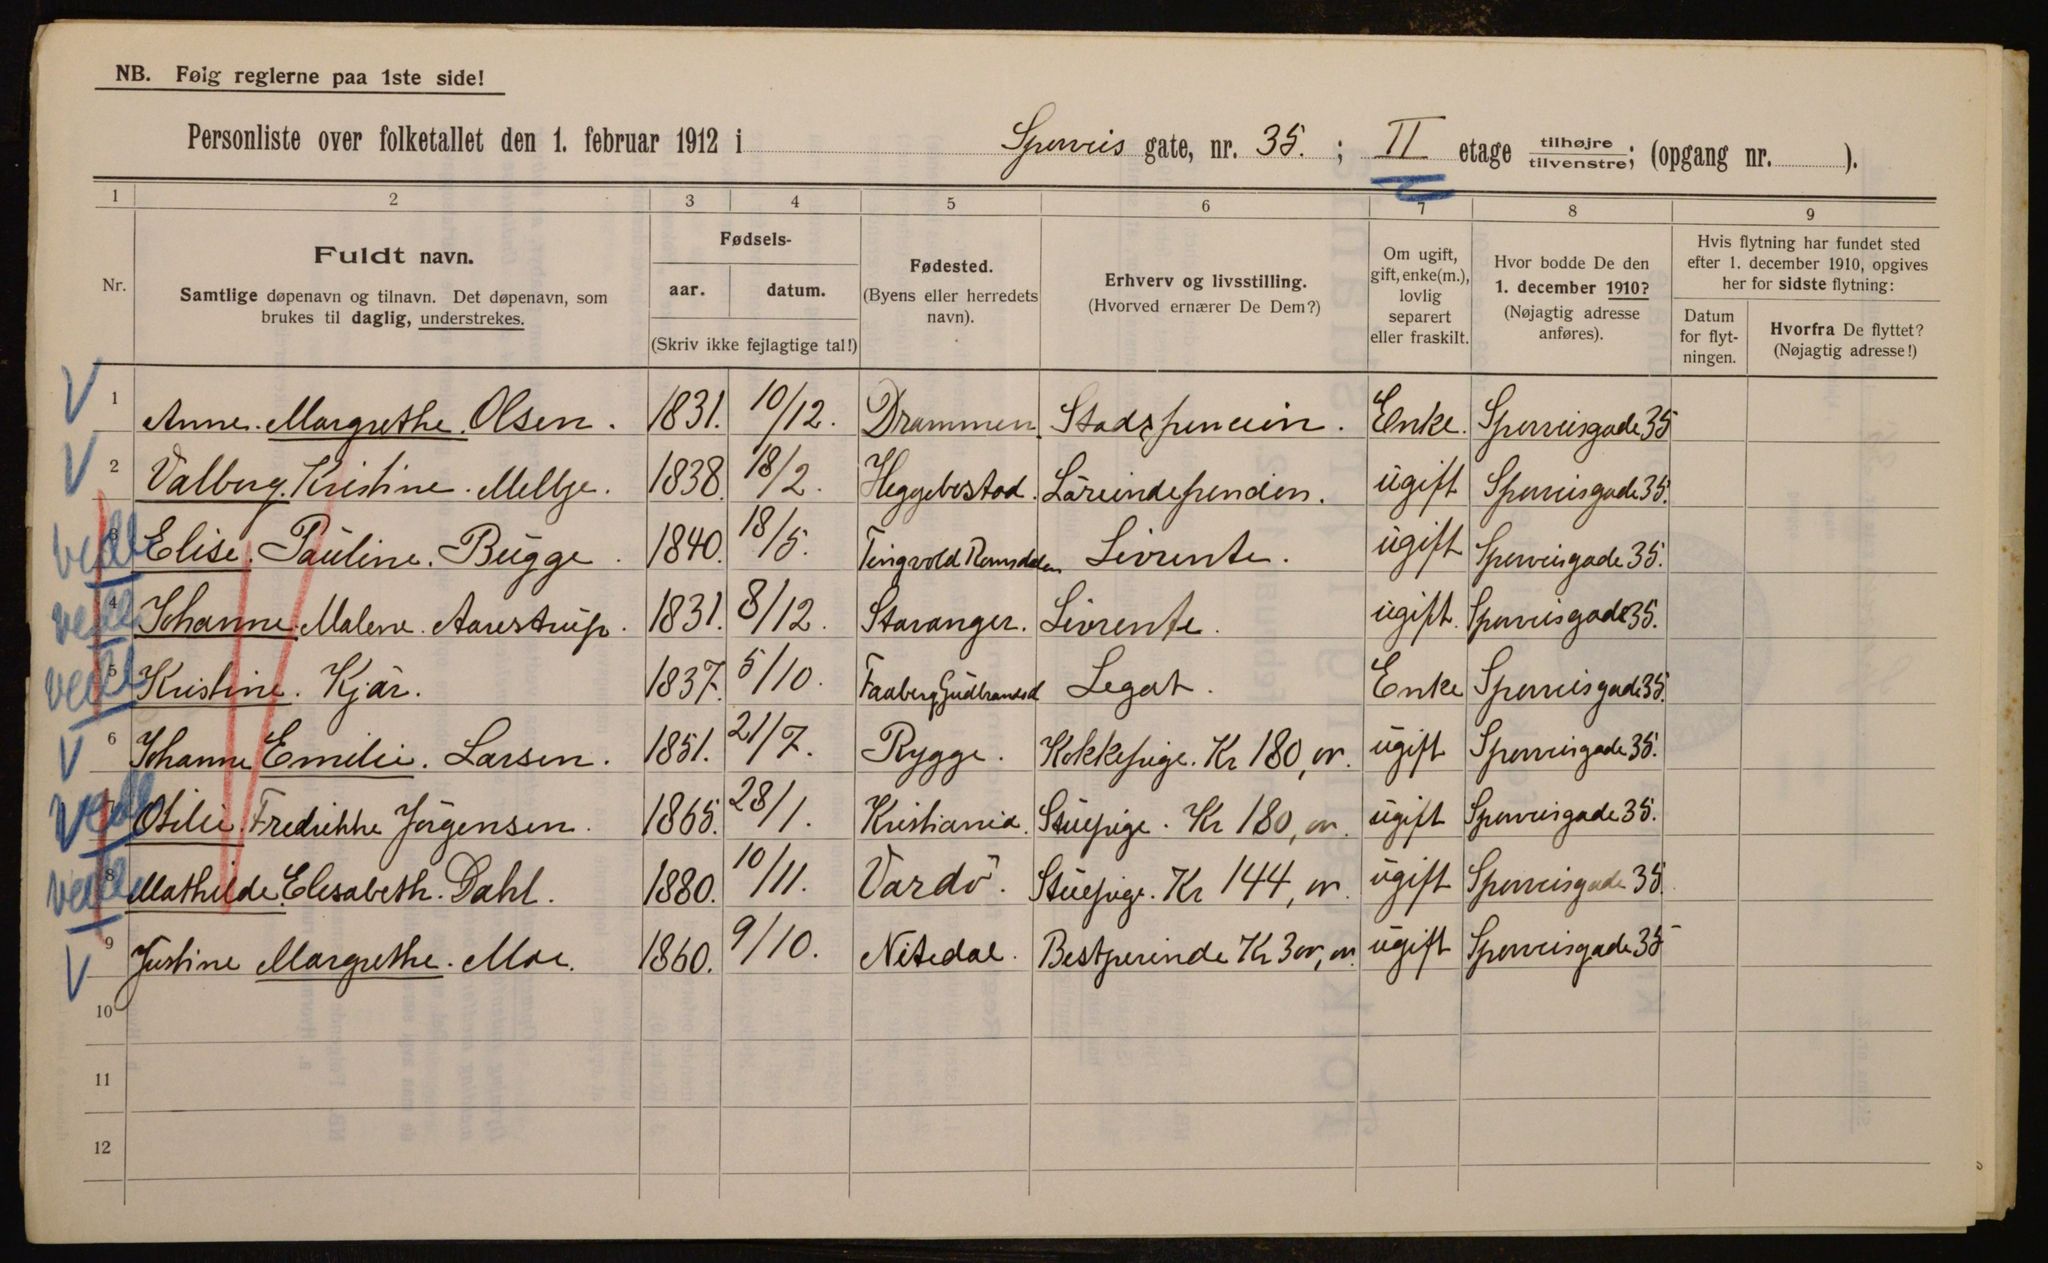 NB. Følg reglerne paa 1ste side!
Personliste over folketallet den 1. februar 1912 i Sporveis gate, nr. 35. ; II etage tilhøjre tilvenstre; (opgang nr. ).
1 2 3 4 5 6 7 8 9
Nr.
Fuldt navn.
Samtlige døpenavn og tilnavn. Det døpenavn, som
brukes til daglig, understrekes.
Fødsels-
aar. datum.
(Skriv ikke fejlagtige tal!)
Fødested.
(Byens eller herredets
navn).
Erhverv og livsstilling.
(Hvorved ernærer De Dem?)
Om ugift,
gift, enke(m.),
lovlig
separert
eller fraskilt.
Hvor bodde De den
1. december 1910?
(Nøjagtig adresse
anføres).
Hvis flytning har fundet sted
efter 1. december 1910, opgives
her for sidste flytning:
Datum
for flyt-
ningen.
Hvorfra De flyttet?
(Nøjagtig adresse!)
V 1 Anne. Margrethe. Olsen. 1831. 10/12. Drammen. Stadspension. Enke. Sporveisgade 35
V 2 Valborg. Kristine. Melbye. 1838. 18/2. Heggebostad. ugift Sporveisgade 35.
vedt 3 Elise. Pauline. Bugge. 1840. 18/5. Tingvold Romsdalen Livrente. ugift Sporveisgade 35.
4 Johanne Malene. Aarestrup. 1831. 8/12. Stavanger. Livrente. ugift. Sporveisgade 35.
5 Kristine. Kjär. 1837. 5/10. Faaberg Gudbrandsd Legat. Enke Sporveisgade 35.
V 6 Johanne Emilie. Larsen. 1851. 21/7. Rygge. Kokkepige. Kr 180,00. ugift Sporveisgade 35.
7 Otilie. Fredrikke Jörgensen. 1865. 28/1. Kristiania. Stuepige. Kr 180,00. ugift Sporveisgade 35.
8 Mathilde. Elisabeth. Dahl. 1880. 10/11. Vardö. Stuepige. Kr 144,00. ugift Sporveisgade 35.
V 9 Justine Margrethe. Moe. 1860. 9/10. Nitedal. Bestyrerinde Kr 300,00. ugift Sporveisgade 35
10
11
12